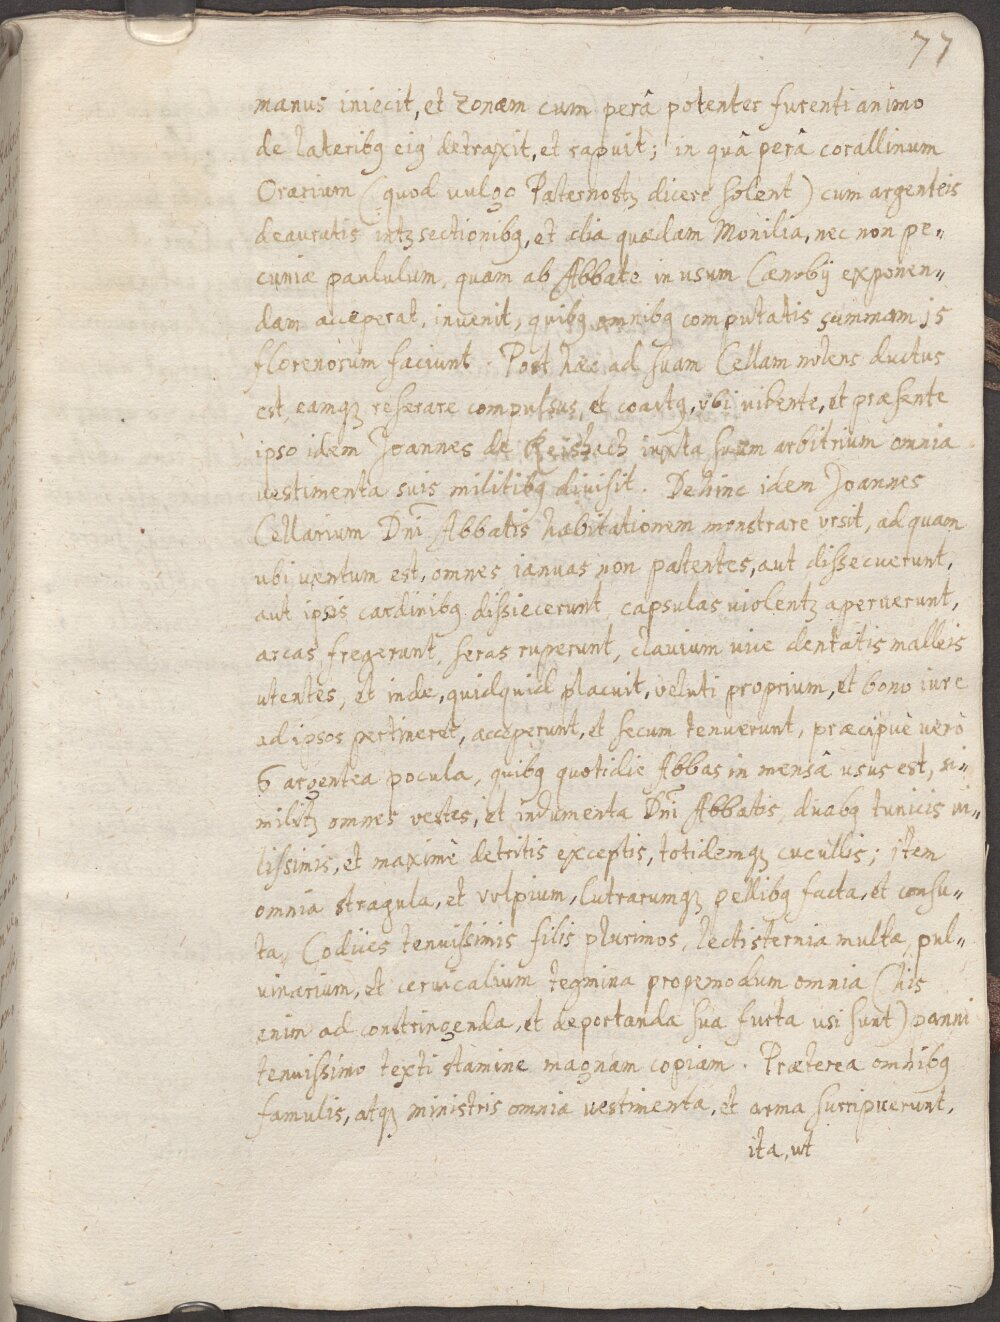 77
manus iniecit, et zonam cum perâ potenter furenti animo
de lateribꝫ eiꝫ detraxit, et rapuit; in quâ perâ corallinum
Orarium (quod vulgo Paternostꝫ dicere solent) cum argenteis
deauratis intꝫsectionibꝫ, et alia quædam Monilia, nec non pe„
cuniæ paululum, quam ab Abbate in usum Cænobij exponen„
dam acceperat, invenit, quibꝫ omnibꝫ computatis summam 15
florenorum faciunt. Post hæc ad suam Cellam nolens ductus
est, eamqꝫ reserare compulsus, et coactꝫ, vbi vidente, et præsente
ipso idem Joannes de Reisbach iuxta suum arbitrium omnia
vestimenta suis militibꝫ divisit. Dehinc idem Joannes
Cellarium Dnī Abbatis habitationem monstrare vrsit, ad quam
ubi ventum est, omnes ianuas non patentes, aut dissecuerunt,
aut ipsis cardinibꝫ dissiecerunt, capsulas violentꝫ aperuerunt,
arcas fregerunt, seras ruperunt, clavium vice dentatis malleis
utentes, et inde, quidquid placuit, veluti proprium, et bono iure
ad ipsos pertineret, acceperunt, et secum tenuerunt, præcipuè verò
6 argentea pocula, quibꝫ quotidie Abbas in mensâ usus est, si„
militꝫ omnes vestes, et indumenta Dnī Abbatis, duabꝫ tunicis vi„
lissimis, et maximè detritis exceptis, totidemqꝫ cucullis; item
omnia stragula, et vulpium, lutrarumqꝫ pellibꝫ facta, et consu„
ta, Codices tenuissimis filis plurimos, lectisternia multa, pul„
vinarium, et cervicalium tegmina propemodum omnia (his
enim ad constringenda, et deportanda sua furta usi sunt) panni
tenuissimo texti stamine magnam copiam. Præterea omnibꝫ
famulis, atqꝫ ministris omnia vestimenta, et arma surripuerunt,
ita, ut